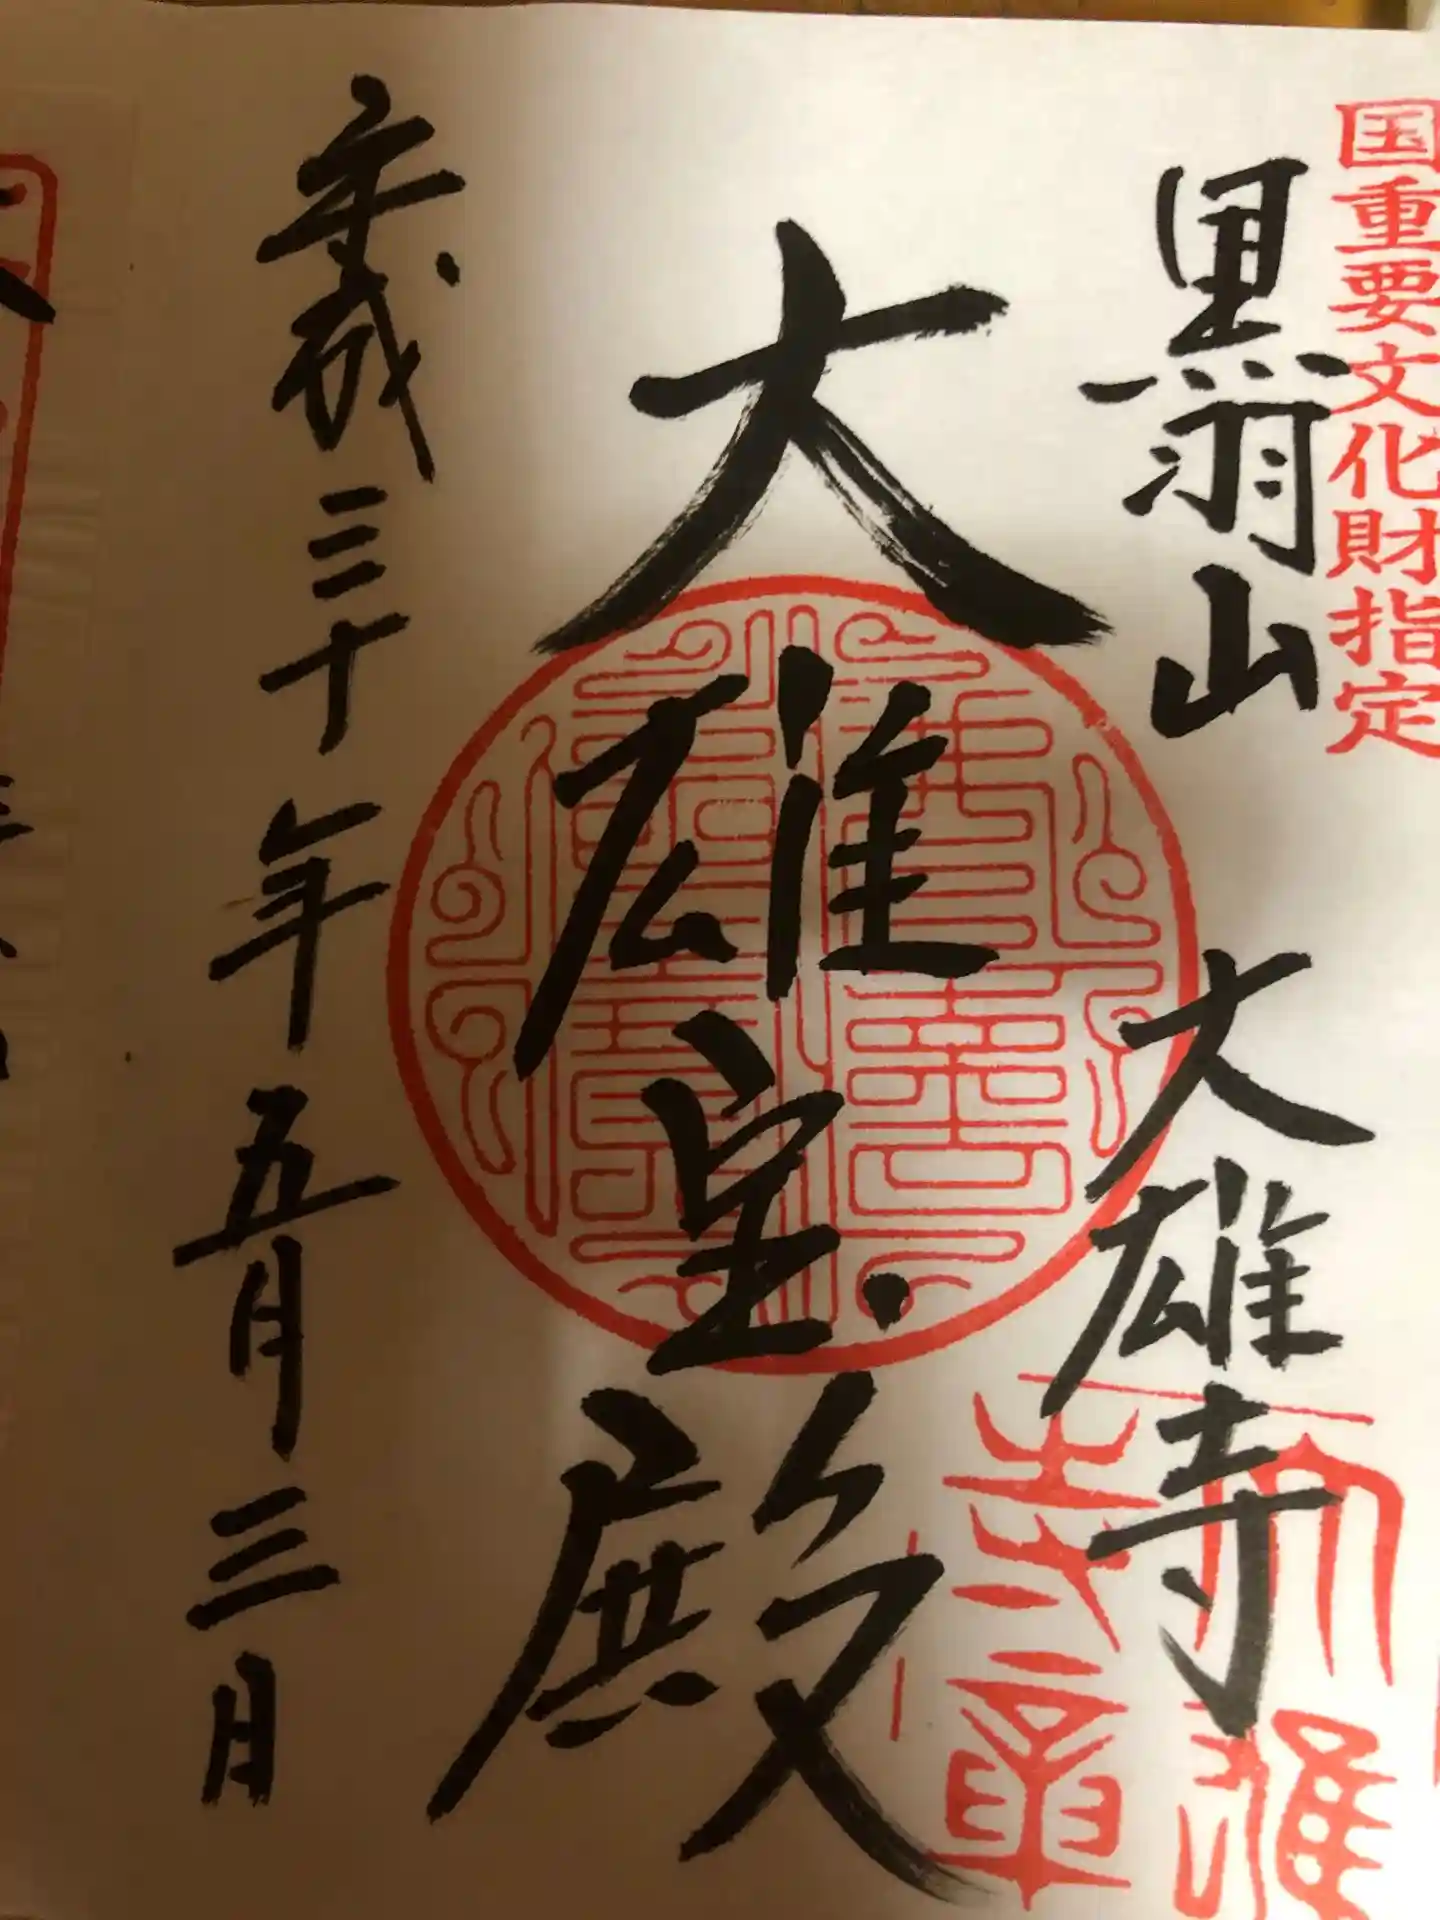 国重要文化財指定
黒羽山 大雄寺
大雄宝殿
平成三十年五月三日